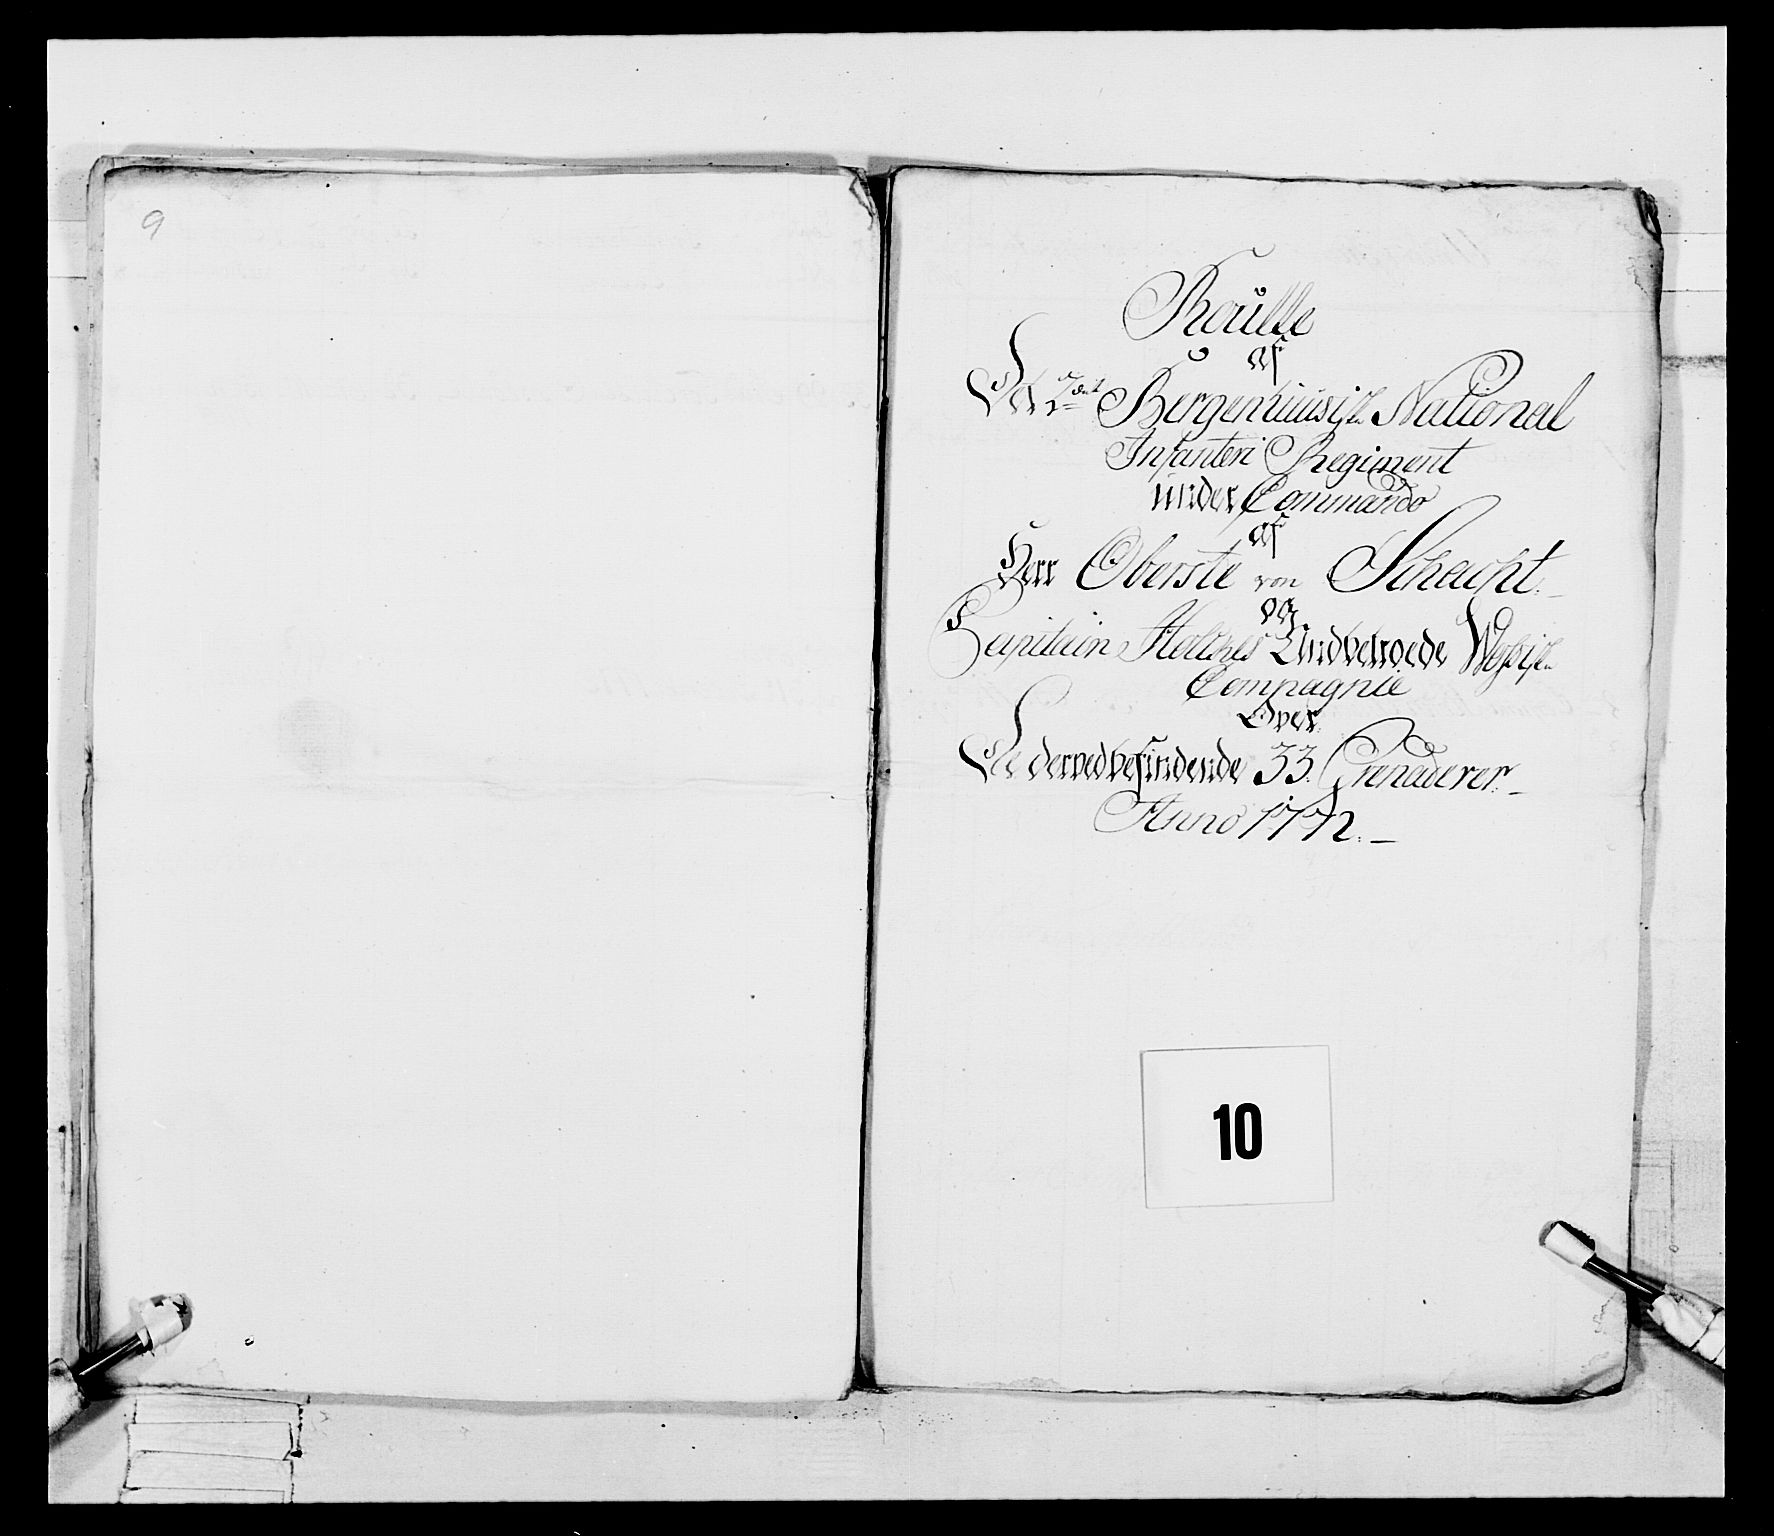 9
Roulle
af
Det 2det Bergenhuusiske National
Infanteri Regiment
under Commando
af
Herr Oberste von Schacht.
og
Capitain Holtzes
Compagnie
Over
De derved befindende 33. Grenaderer.
Anno 1772.
10